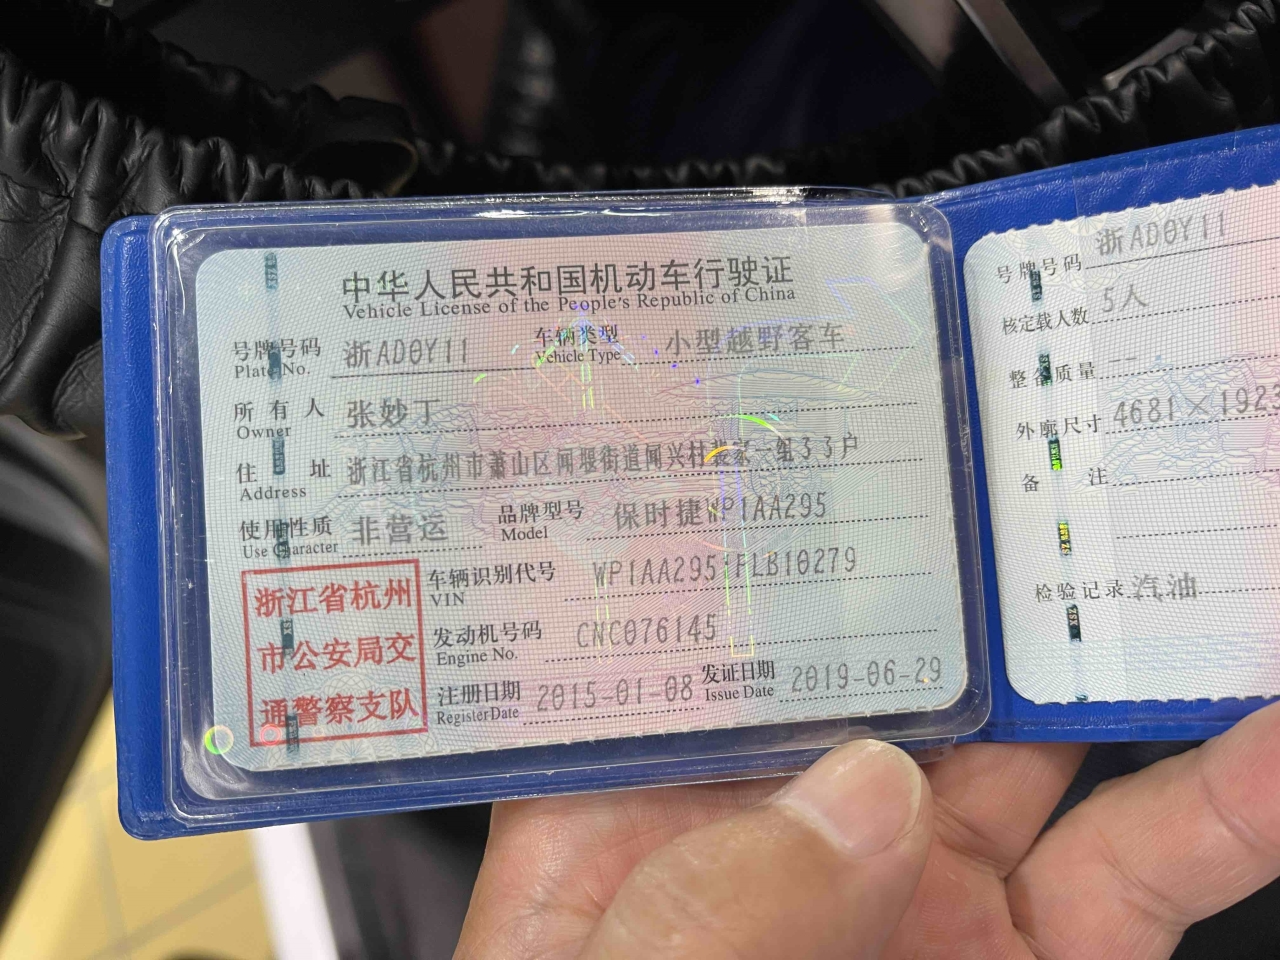 中华人民共和国机动车行驶证
Vehicle License of the People's Republic of China
号牌号码 浙AD0Y11 车辆类型 小型越野客车
Plate No. Vehicle Type
所有人 张妙丁
Owner
住址 浙江省杭州市萧山区闻堰街道闻兴村裴家一组33户
Address
使用性质 非营运 品牌型号 保时捷WP1AA295
Use Character Model
车辆识别代号 WP1AA295*FLB10279
VIN
发动机号码 CNC076145
Engine No.
注册日期 2015-01-08 发证日期 2019-06-29
Register Date Issue Date
浙江省杭州
市公安局交
通警察支队
号牌号码 浙AD0Y11
核定载人数 5人
整备质量
外廓尺寸 4681×1923
备注
检验记录 汽油